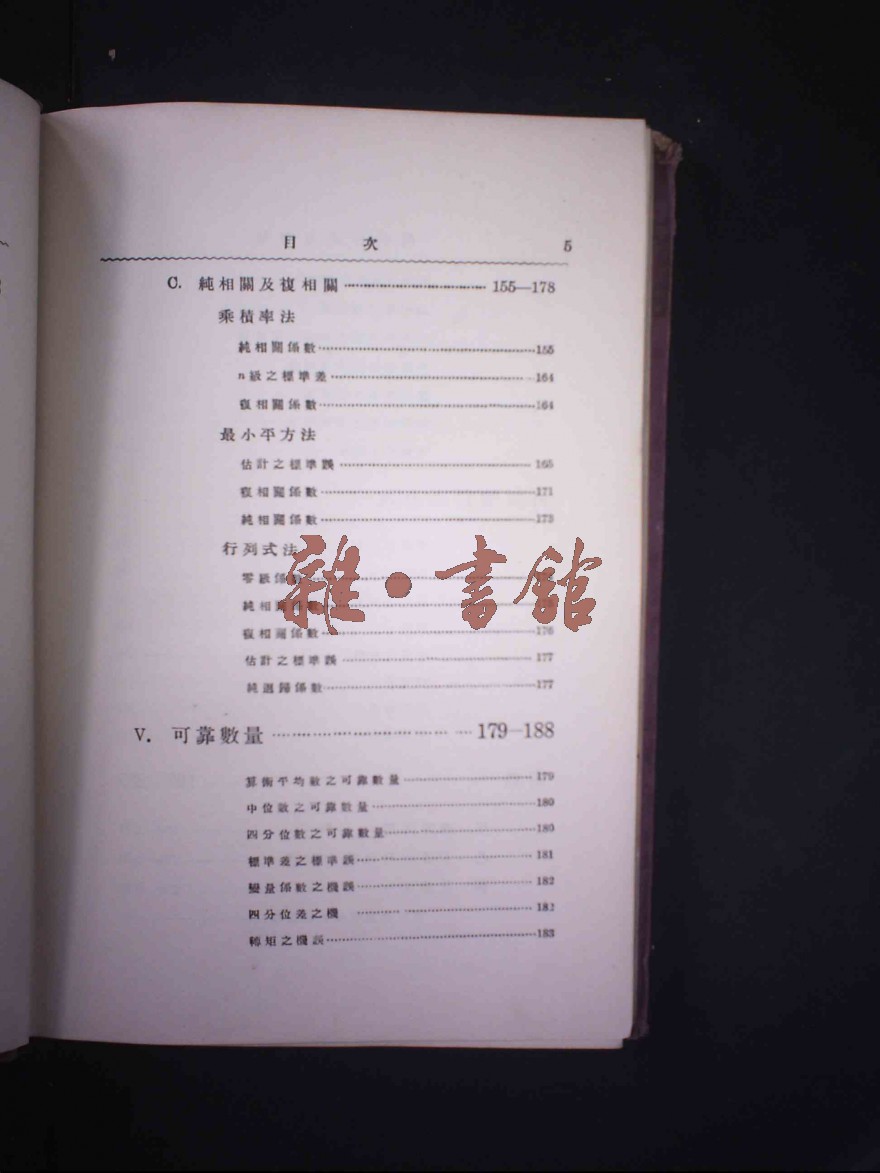 目 次 5
C. 純相關及複相關 155—178
乘積率法
純相關係數 155
n級之標準差 164
複相關係數 164
最小平方法
估計之標準誤 165
複相關係數 171
純相關係數 173
行列式法
零級係數
純相關係數
複相關係數 176
估計之標準誤 177
純迴歸係數 177
V. 可靠數量 179—188
算術平均數之可靠數量 179
中位數之可靠數量 180
四分位數之可靠數量 180
標準差之標準誤 181
變量係數之機誤 182
四分位差之機 182
之機誤 183
雜·書館